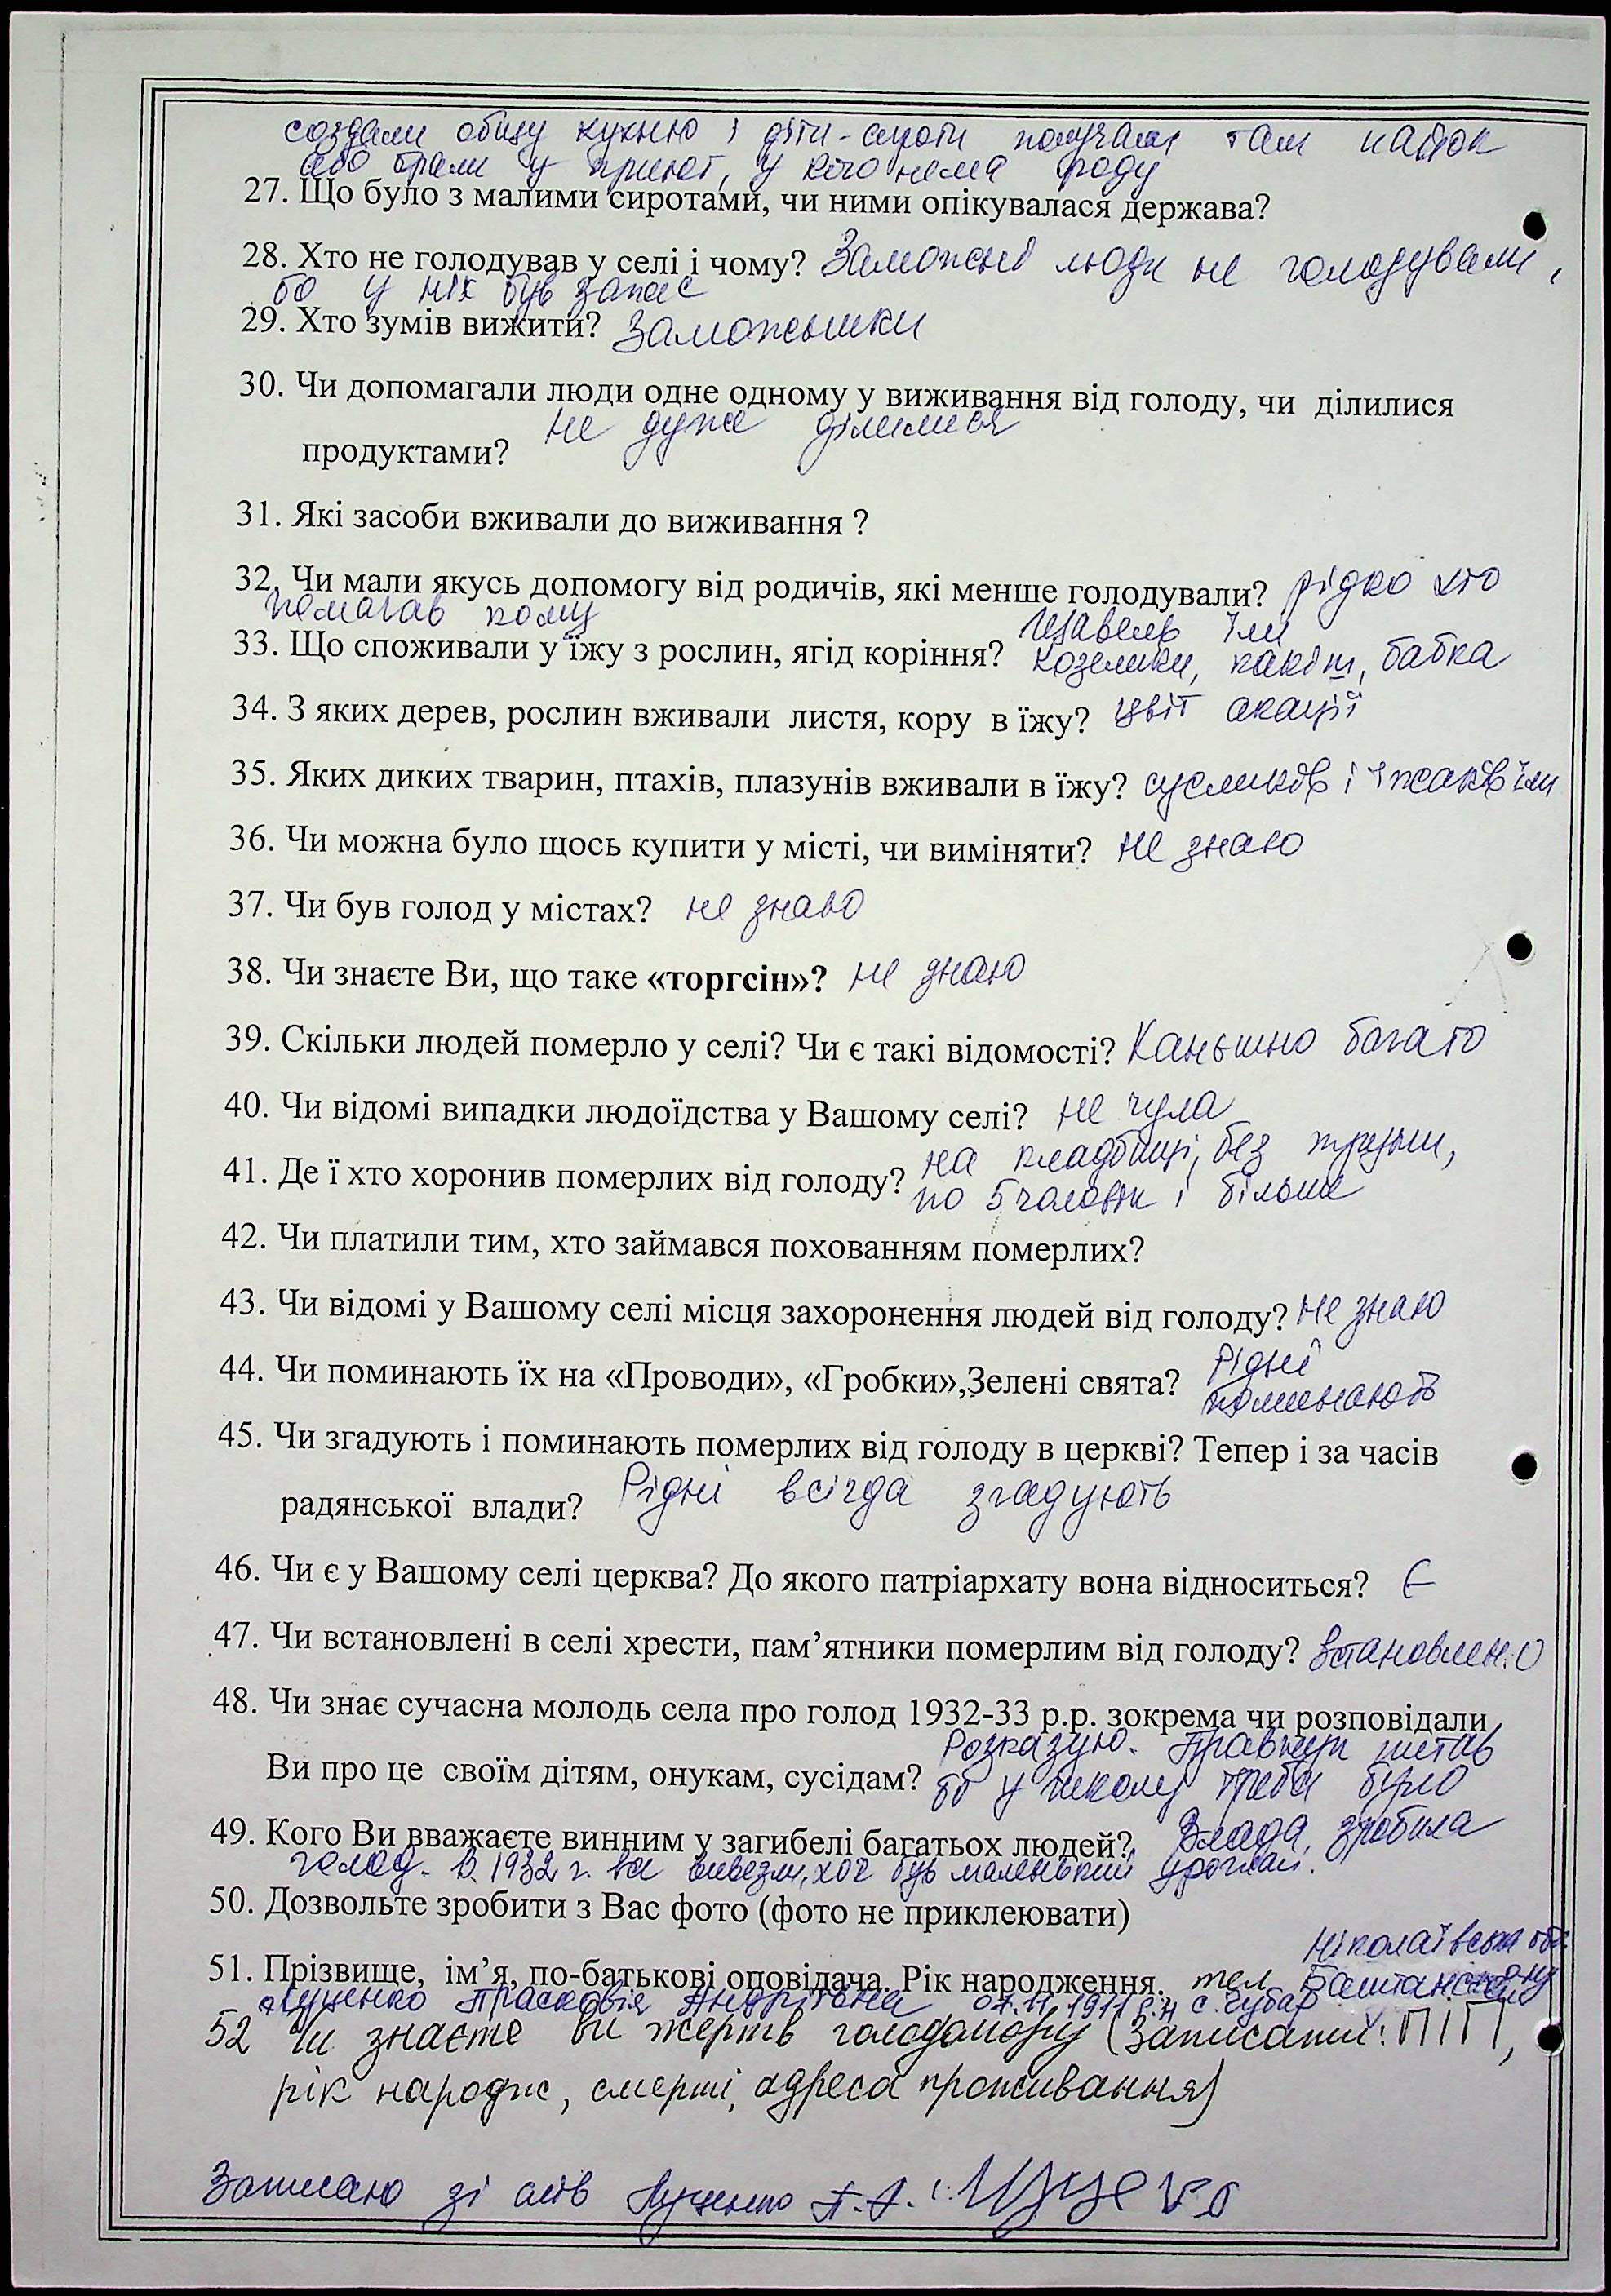 создали общу кухню і діти-сироти получали там пайок
або брали у приют, у кого нема роду
27. Що було з малими сиротами, чи ними опікувалася держава?
28. Хто не голодував у селі і чому? Заможні люди не голодували,
бо у них був запас
29. Хто зумів вижити? Заможники
30. Чи допомагали люди одне одному у виживання від голоду, чи ділилися
не дуже ділилися
продуктами?
31. Які засоби вживали до виживання ?
32. Чи мали якусь допомогу від родичів, які менше голодували? рідко хто
помагав кому
щавель їли
33. Що споживали у їжу з рослин, ягід коріння? козелики, бабка
34. З яких дерев, рослин вживали листя, кору в їжу? цвіт акації
35. Яких диких тварин, птахів, плазунів вживали в їжу? сусликів і їжаків їли
36. Чи можна було щось купити у місті, чи виміняти? не знаю
37. Чи був голод у містах? не знаю
38. Чи знаєте Ви, що таке «торгсін»? не знаю
39. Скільки людей померло у селі? Чи є такі відомості? Каньшно багато
40. Чи відомі випадки людоїдства у Вашому селі? не чула
на кладбищі, без труни,
41. Де ї хто хоронив померлих від голоду?
по 5 чоловік і більше
42. Чи платили тим, хто займався похованням померлих?
43. Чи відомі у Вашому селі місця захоронення людей від голоду? не знаю
44. Чи поминають їх на «Проводи», «Гробки»,Зелені свята? Рідні
поминають
45. Чи згадують і поминають померлих від голоду в церкві? Тепер і за часів
радянської влади? Рідні всігда згадують
46. Чи є у Вашому селі церква? До якого патріархату вона відноситься? Є
47. Чи встановлені в селі хрести, пам’ятники померлим від голоду? встановлено
48. Чи знає сучасна молодь села про голод 1932-33 р.р. зокрема чи розповідали
Розказую. Правнук питав
Ви про це своїм дітям, онукам, сусідам? бо у школу треба було
49. Кого Ви вважаєте винним у загибелі багатьох людей? Влада зробила
голод. В 1932 г. все вивезли, хоч був маленький урожай.
50. Дозвольте зробити з Вас фото (фото не приклеювати)
Ніколаївська обл.
51. Прізвище, ім’я, по-батькові оповідача. Рік народження. тел Баштанського
Луценко Прасковія Андріївна 07.11.1911 р.н с.
52 Чи знаєте ви жертв голодомору (Записати: ПІП,
рік народж, смерті, адреса проживання)
Записано зі слів Луценко П.А.